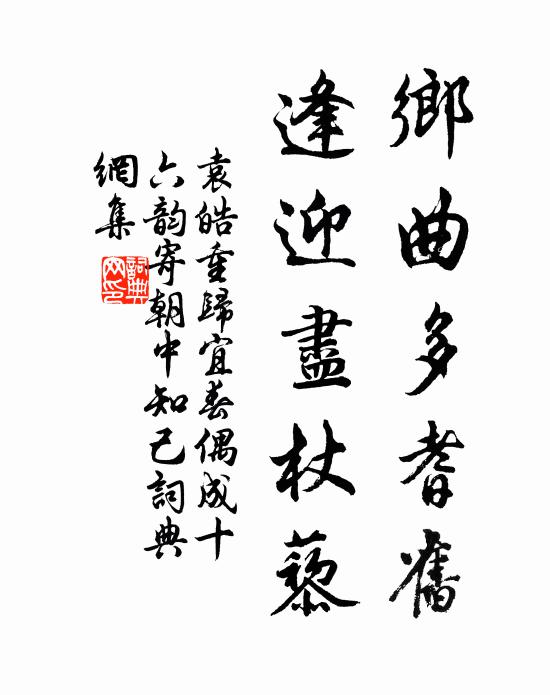 鄉曲多耆舊
逢迎盡杖藜
袁皓重歸宜春偶成十
六韵寄朝中知己詞典
網集
詞典網印